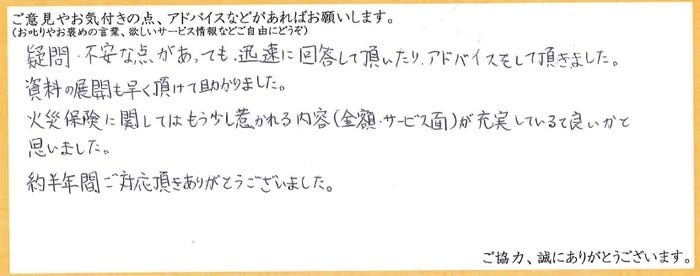 ご意見やお気付きの点、アドバイスなどがあればお願いします。
(お叱りやお褒めの言葉、欲しいサービス情報などご自由にどうぞ)
疑問・不安な点があっても、迅速に回答して頂いたり、アドバイスをして頂きました。
資料の展開も早く頂けて助かりました。
火災保険に関してはもう少し惹かれる内容(金額・サービス面)が充実していると良いかと
思いました。
約半年間ご対応頂きありがとうございました。
ご協力、誠にありがとうございます。